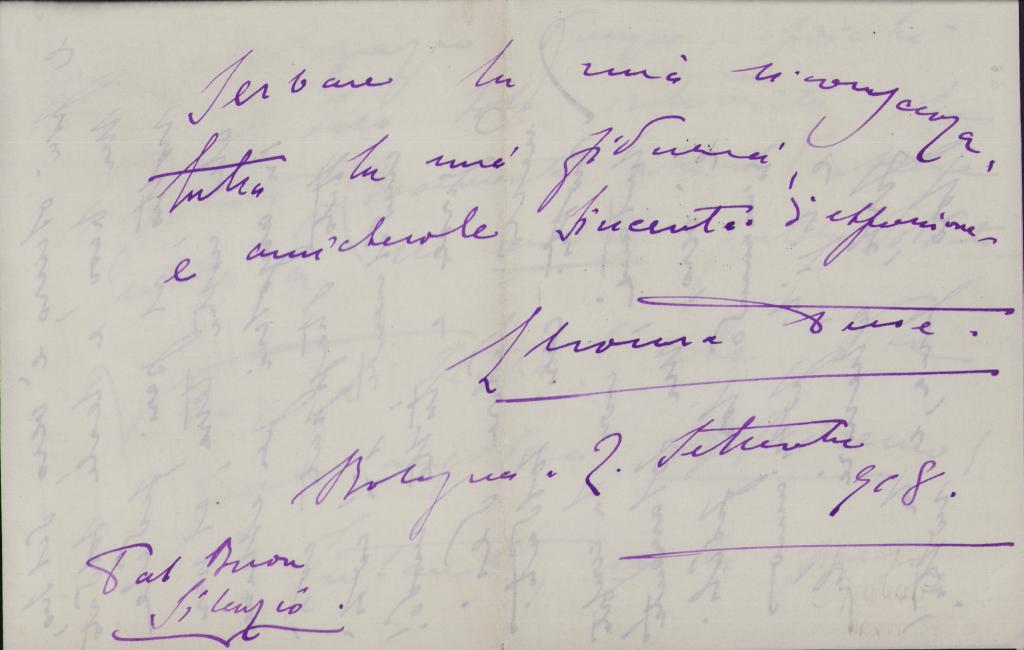 Serbare la mia riconoscenza,
tutta la mia fiducia,
e amichevole sincerità d'espansione
Eleonora Duse.
Bologna. 2. Settembre
908.
Dal Buon
Silenzio.